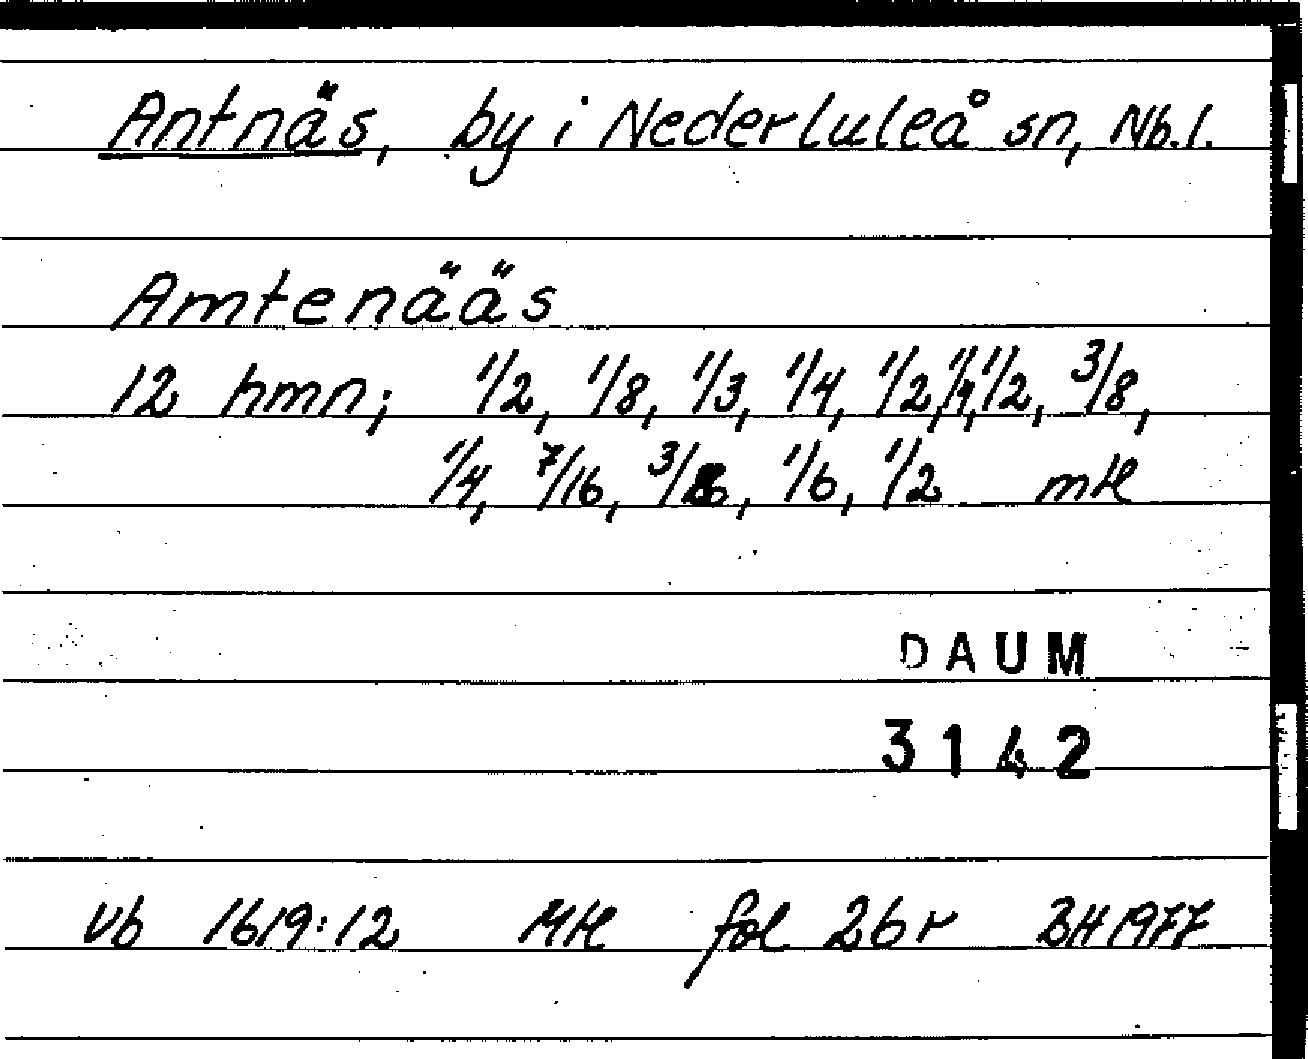 Antnäs, by i Nederluleå sn, Nb.l.
Amtenääs
12 hmn; 1/2, 1/8, 1/3, 1/4, 1/2, 1/4, 1/2, 3/8,
1/4, 7/16, 3/16, 1/6, 1/2 mtl
DAUM
3142
Vb 1619:12 Mtl fol 26r BH 1977